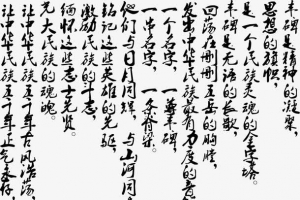 丰碑是精神的凝聚，
思想的旗帜，
是一个民族灵魂的金字塔。
丰碑是无语的长歌，
回荡在三山五岳的胸膛，
发出中华民族最有力度的音
一个名字，一尊丰碑，
一串名字，一条脊梁。
他们与日月同辉，与山河同在
铭记这些英雄的先驱，
激励民族的斗志，
缅怀这些志士先贤。
光大民族的魂魄。
让中华民族五千年古风浩荡，
让中华民族五千年正气永存，